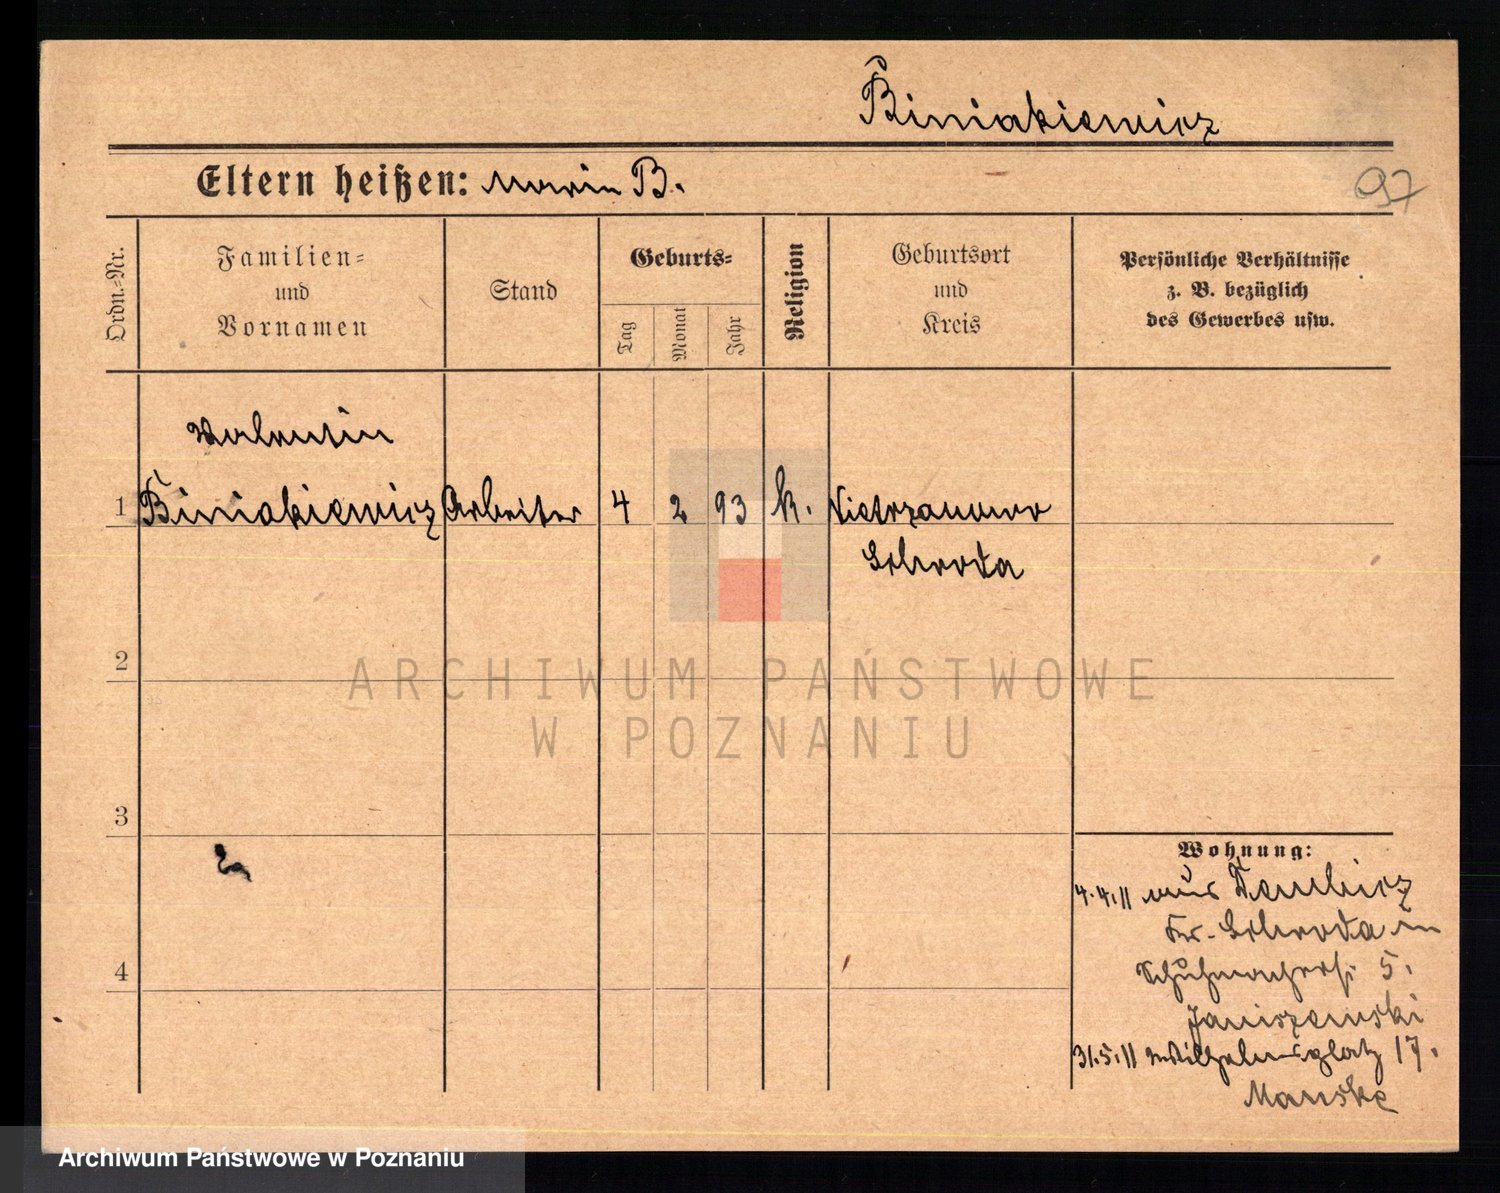 Biniakiewicz
Eltern heißen: Maria B.
97
Ordn.-Nr.
Familien-
und
Vornamen
Stand
Geburts-
Tag
Monat
Jahr
Religion
Geburtsort
und
Kreis
Persönliche Verhältnisse
z. B. bezüglich
des Gewerbes usw.
Valentin
1 Biniakiewicz Arbeiter 4 2 93 k. Nietrzanowo
Schroda
2
ARCHIWUM PAŃSTWOWE
W POZNANIU
3
Wohnung:
4.4.11 aus
Kr. Schroda in
4
Schuhmacherstr. 5.
Janiszewski
31.5.11 Wilhelmsplatz 17.
Manske
Archiwum Państwowe w Poznaniu